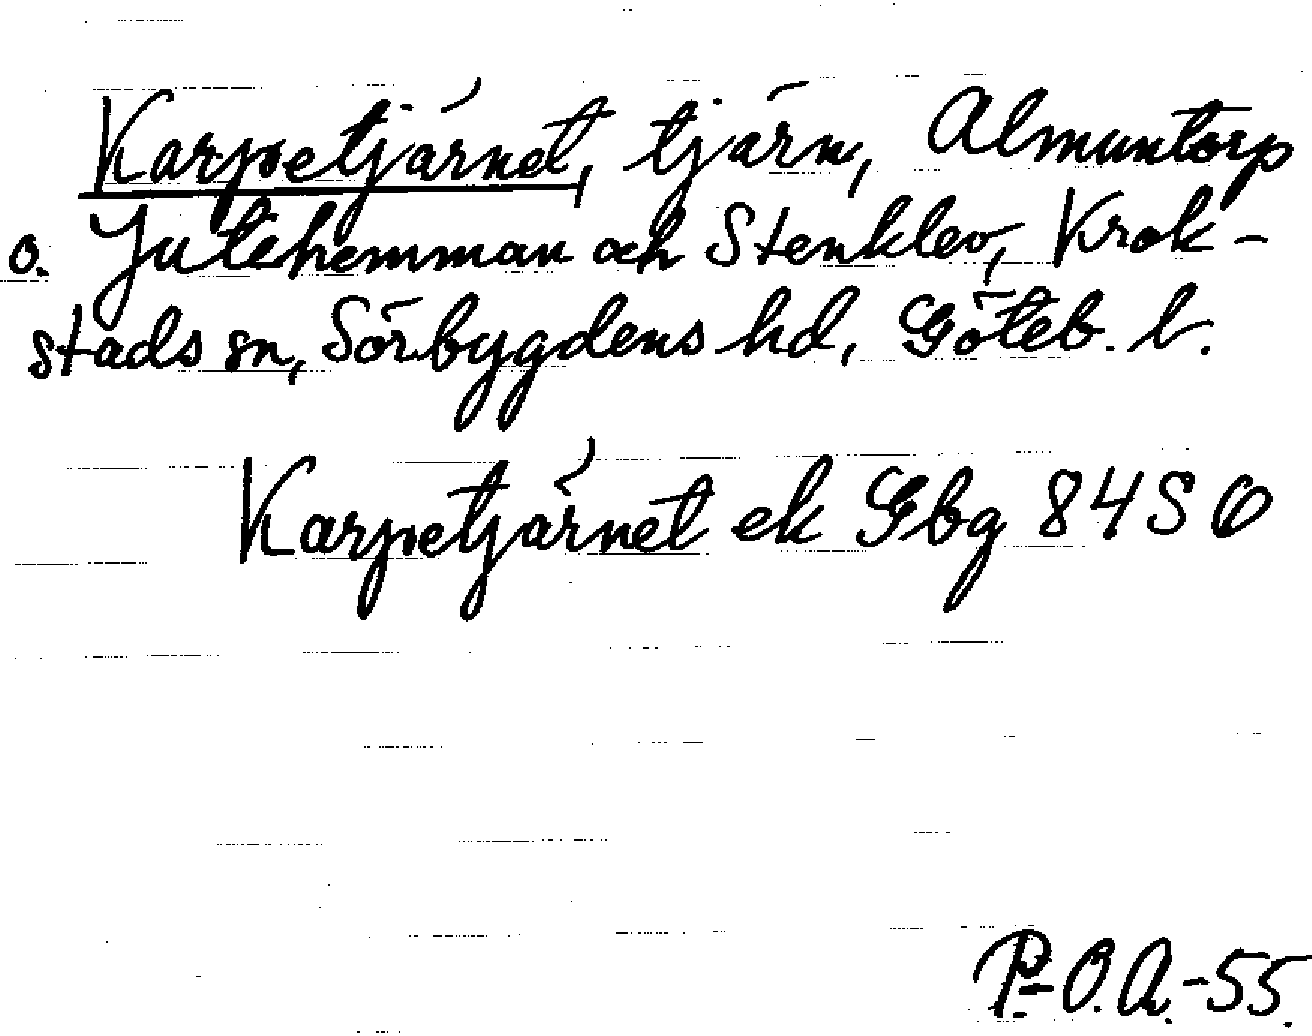 Karpetjärnet, tjärn, Almuntorp
o. Jutehemman och Stenklev, Krok-
stads sn, Sörbygdens hd, Göteb. l.
Karpetjärnet ek Gbg 84 S Ö
P-O.A.-55.